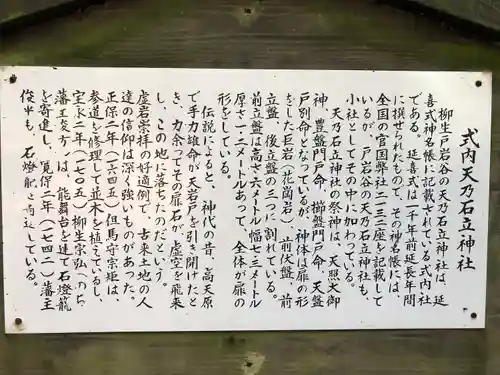 式内天乃石立神社
柳生戸岩谷の天乃石立神社は、延
喜式神名帳に記載されている式内社
である。延喜式は一千年前延長年間
に撰ぜられたもので、その神名帳には、
全国の官国弊社二二三二座を記載して
いるが、戸岩谷の天乃石立神社も、
小社としてその中に加わっている。
天乃石立神社の祭神は、天照大御
神、豊盤門戸命、櫛盤門戸命、天盤
戸別命となっているが、神体は扉の形
をした巨岩（花崗岩）前伏盤、前
立盤、後立盤の三つに割れている。
前立盤は高さ六メートル幅七・三メートル
厚さ一・二メートルあって、全体が扉の
形をしている。
伝説によると、神代の昔、高天原
で手力雄命が天岩戸を引き開けたと
き、力余ってその扉石が虚空を飛来
し、この地に落ちたのだという。
虚岩崇拝の好適例で、古来土地の人
達の信仰は深く強いものがあった。
正保二年（一六四五）但馬守宗矩は、
参道を修理して並木を植えているし、
宝永二年（一七〇五）柳生宗弘（のち
藩主俊方）は、能舞台を建て石燈籠
を寄進し、寛保二年（一七四二）藩主
俊平も、石燈籠を寄進している。